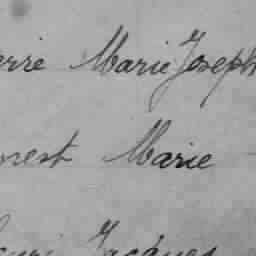 erre Marie Joseph
nest Marie
Jacques